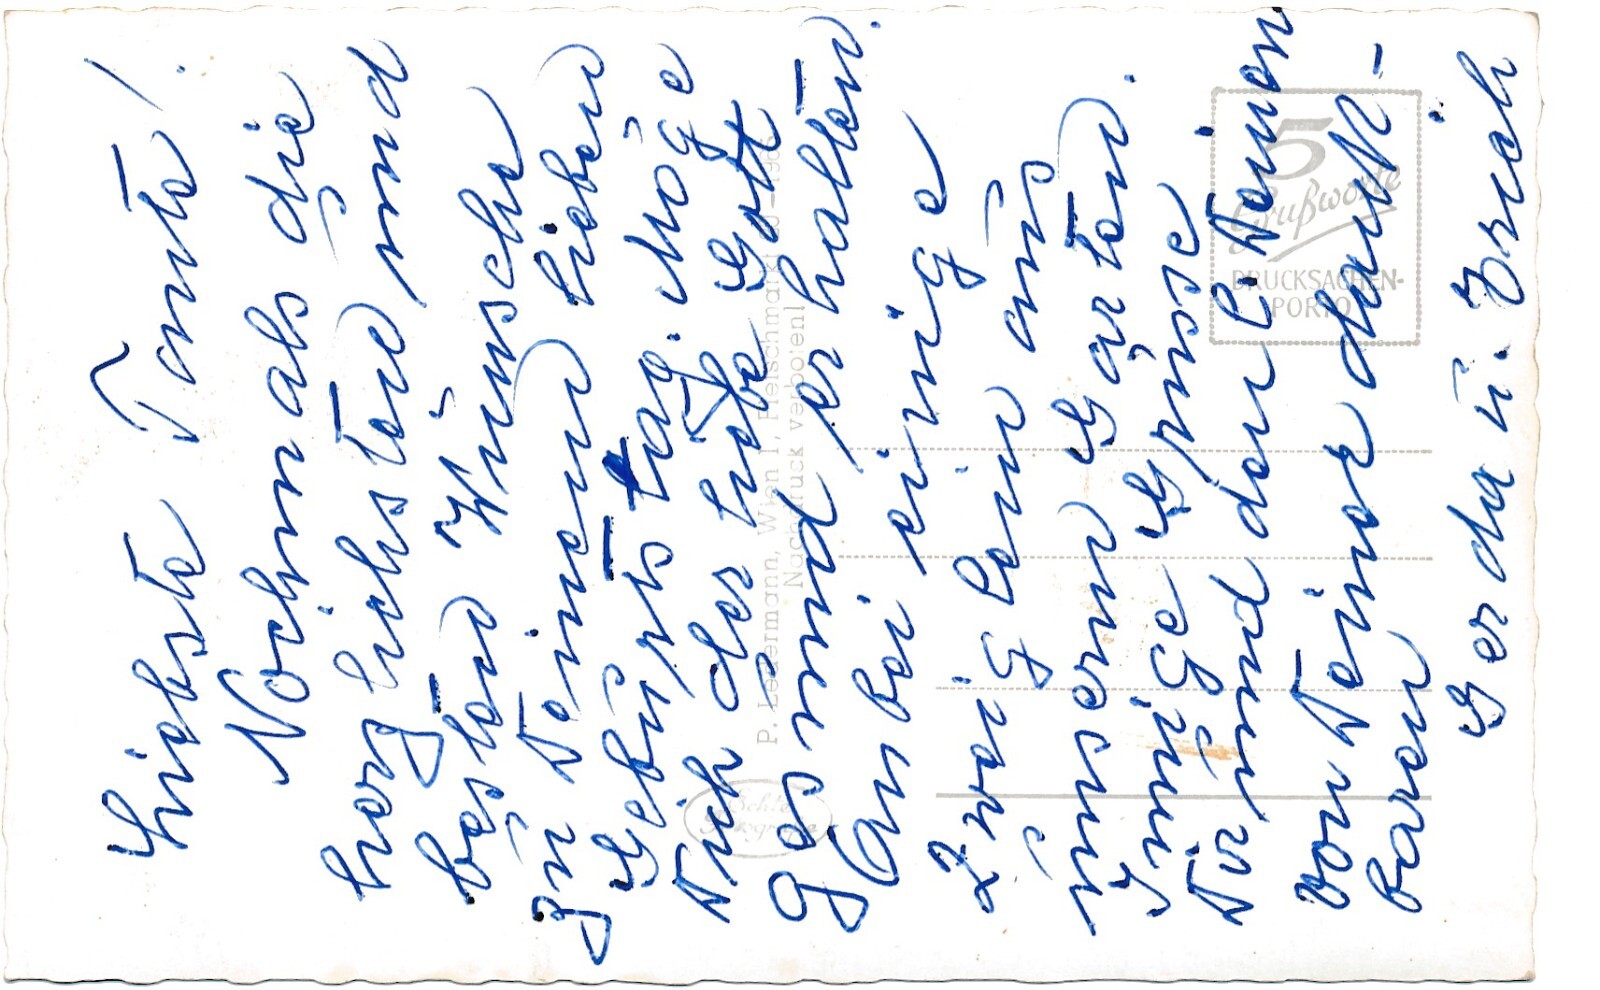 Liebste Tante!
Nochmals die
herzlichsten und
besten Wünsche
zu Deinem lieben
Geburtstag. Möge
Dich der liebe Gott
gesund erhalten.
Anbei einige
Zweiglein aus
unserm Garten.
Innige Grüsse
Dir und den l. Deinen
von Deiner dank-
baren
Gerda u. Erich
P. Ledermann, Wien I, Fleischmarkt
Nachdruck verboten!
Echte
5
Grußworte
DRUCKSACHEN-
PORTO